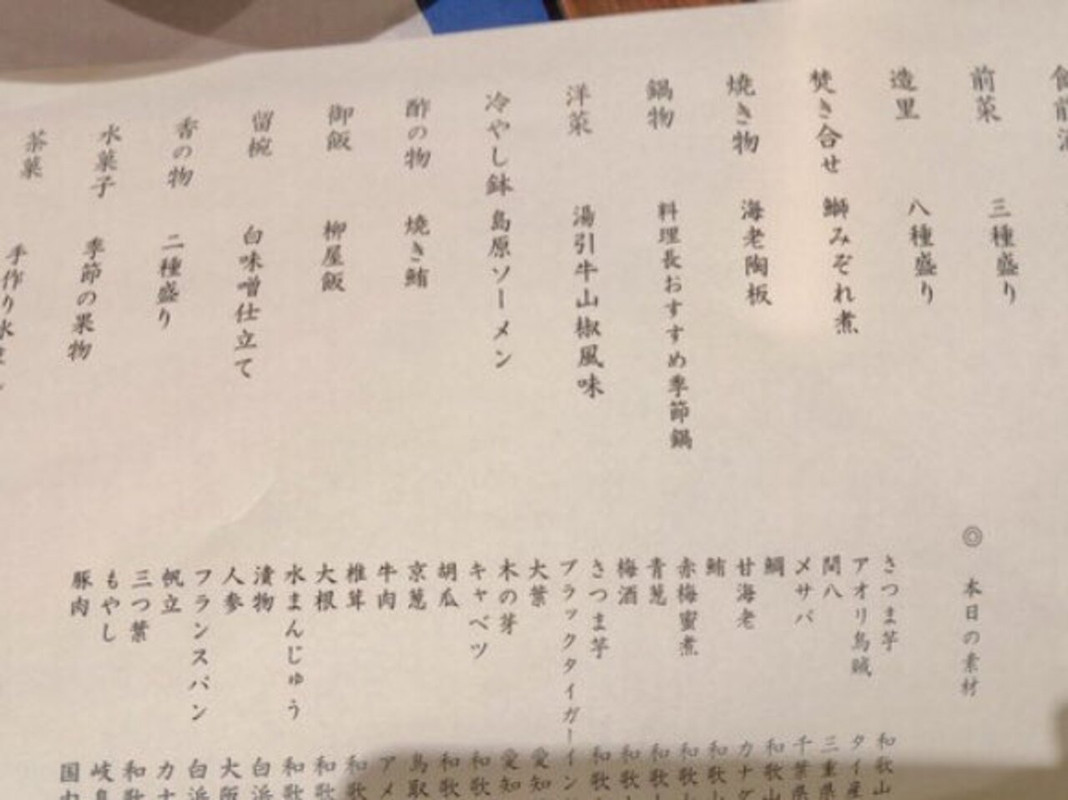 前菜 三種盛り
造里 八種盛り
焚き合せ 鰤みぞれ煮
焼き物 海老陶板
鍋物 料理長おすすめ季節鍋
洋菜 湯引牛山椒風味
冷やし鉢 島原ソーメン
酢の物 焼き鮪
御飯 柳屋飯
留椀 白味噌仕立て
香の物 二種盛り
水菓子 季節の果物
茶菓 手作り水
◎ 本日の素材
さつま芋 和歌山
アオリ烏賊 タイ産
間八 三重県
メサバ 千葉県
鯛 和歌山
甘海老 カナダ
鮪 和歌山
赤梅蜜煮 和歌山
青葱 和歌
梅酒 和歌
さつま芋 和歌
ブラックタイガー イン
大葉 愛知
木の芽 愛知
キャベツ 和歌
胡瓜 和歌
京葱 鳥取
牛肉 アメ
椎茸 和歌
大根 和歌
水まんじゅう 和歌
漬物 白浜
人参 大阪
フランスパン 白浜
帆立 カナ
三つ葉 和歌
もやし 岐阜
豚肉 国内